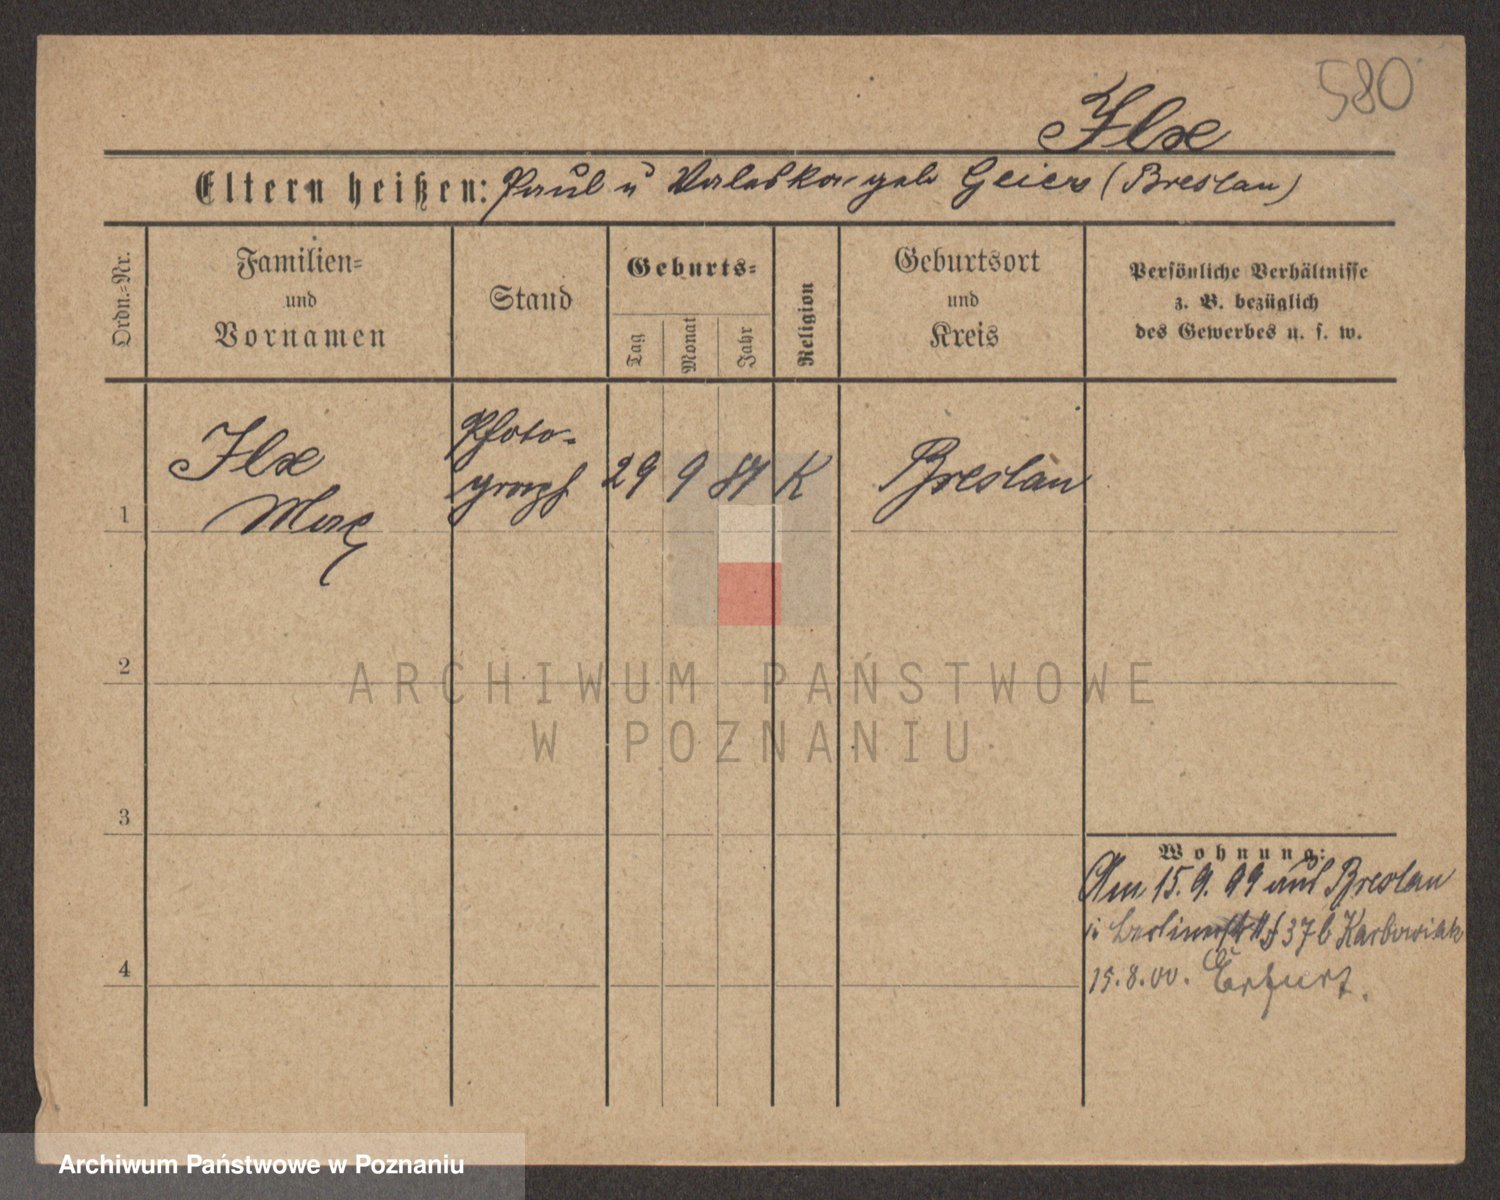 580
Ilse
Eltern heißen: Paul u Valeska geb Geier (Breslau)
Ordn.-Nr.
Familien-
und
Vornamen
Stand
Geburts-
Tag
Monat
Jahr
Religion
Geburtsort
und
Kreis
Persönliche Verhältnisse
z. B. bezüglich
des Gewerbes u. s. w.
1
Ilse
Max
Photo-
graph
29 9 87 K
Breslau
2
3
4
Wohnung:
Am 15. 9. 99 aus Breslau
37 b Karbowiak
15. 8. 00. Erfurt.
ARCHIWUM PAŃSTWOWE
W POZNANIU
Archiwum Państwowe w Poznaniu